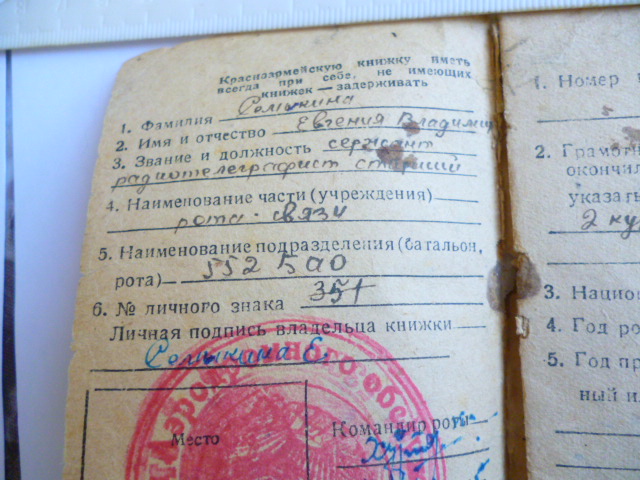 Красноармейскую книжку иметь
всегда при себе, не имеющих
книжек — задерживать
1. Фамилия Семыкина
2. Имя и отчество Евгения Владими
3. Звание и должность сержант
радиотелеграфист старший
4. Наименование части (учреждения)
рота связи
5. Наименование подразделения (батальон,
рота) 552 БАО
6. № личного знака 357
Личная подпись владельца книжки
Семыкина Е.
Место
Командир роты
1. Номер
2. Грамот
окончил
указать
2 ку
3. Нацио
4. Год ро
5. Год пр
ный и